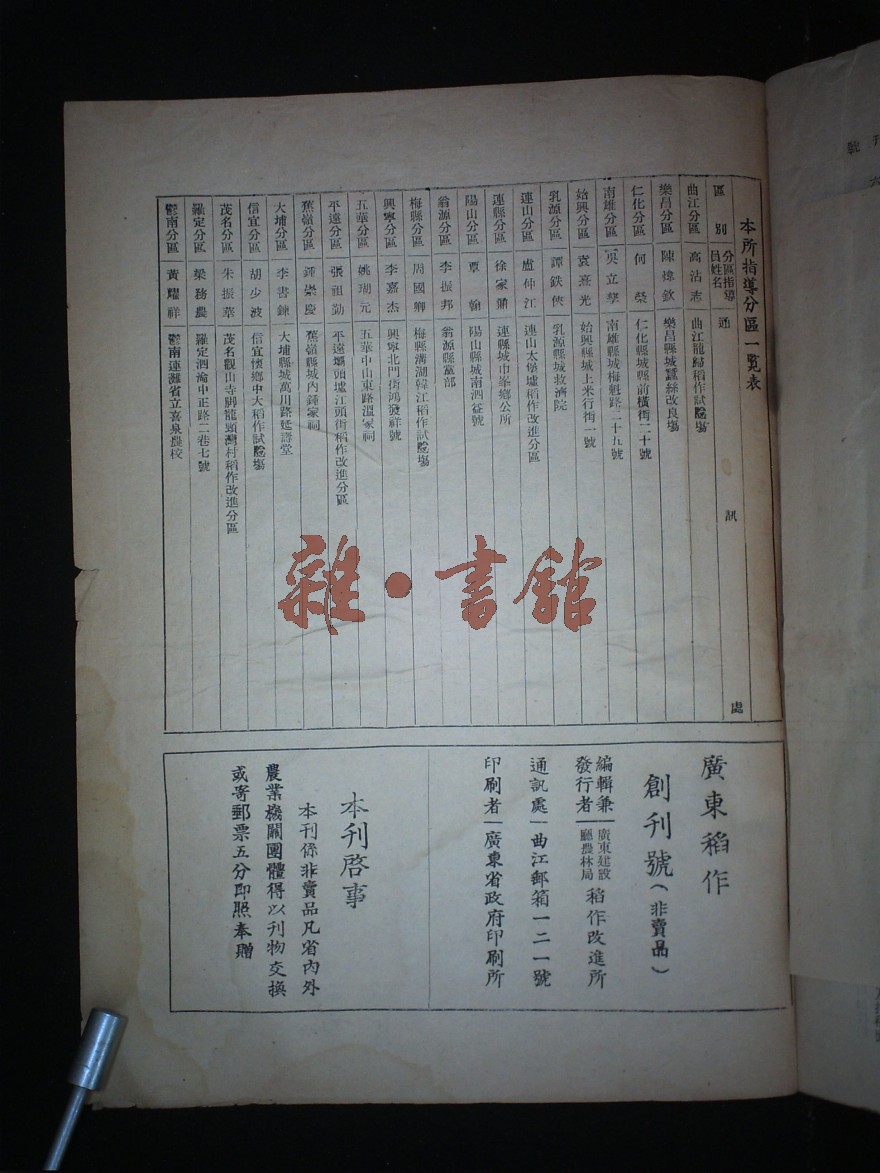 本所指導分區一覽表
區別 分區指導員姓名 通訊處
曲江分區 高沾志 曲江龍歸稻作試驗場
樂昌分區 陳煒欽 樂昌縣城蠶絲改良場
仁化分區 何榮 仁化縣城縣前橫街二十號
南雄分區 吳立擧 南雄縣城梅魁路二十五號
始興分區 袁熹光 始興縣城上米行街一號
乳源分區 譚鉄俠 乳源縣城救濟院
連山分區 盧仲江 連山太堡墟稻作改進分區
連縣分區 徐家 連縣城巾峯鄉公所
陽山分區 覃翰 陽山縣城南泗益號
翁源分區 李振邦 翁源縣黨部
梅縣分區 周國卿 梅縣溝湖韓江稻作試驗場
興寧分區 李嘉杰 興寧北門街鴻發祥號
五華分區 姚瑚元 五華中山東路溫家祠
平遠分區 張祖勤 平遠壩頭墟江頭街稻作改進分區
蕉嶺分區 鍾崇慶 蕉嶺縣城內鍾家祠
大埔分區 李書鍊 大埔縣城萬川路延壽堂
信宜分區 胡少波 信宜懷鄉中大稻作試驗場
茂名分區 朱振華 茂名觀山寺脚龍頭灣村稻作改進分區
羅定分區 梁務農 羅定泗淪中正路二巷七號
鬱南分區 黃耀祥 鬱南連灘省立喜泉農校
廣東稻作
創刊號(非賣品)
編輯兼發行者 廣東建設廳農林局 稻作改進所
通訊處 曲江郵箱一二一號
印刷者 廣東省政府印刷所
本刊啓事
本刊係非賣品凡省內外
農業機關團體得以刊物交換
或寄郵票五分即照奉贈
雜·書舘
刊號